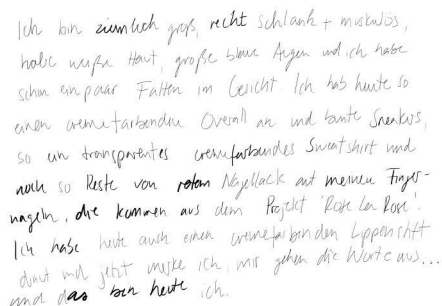 Ich bin ziemlich groß, recht schlank + muskulös,
habe weiße Haut, große blaue Augen und ich habe
schon ein paar Falten im Gesicht. Ich hab heute so
einen cremefarbenen Overall an und bunte Sneakers,
so ein transparentes cremefarbendes Sweatshirt und
noch so Reste von rotem Nagellack auf meinen Finger-
nägeln, die kommen aus dem Projekt 'Rose la Rose'.
Ich habe heute auch einen cremefarbenden Lippenstift
drauf und jetzt merke ich, mir gehen die Worte aus...
und das bin heute ich.